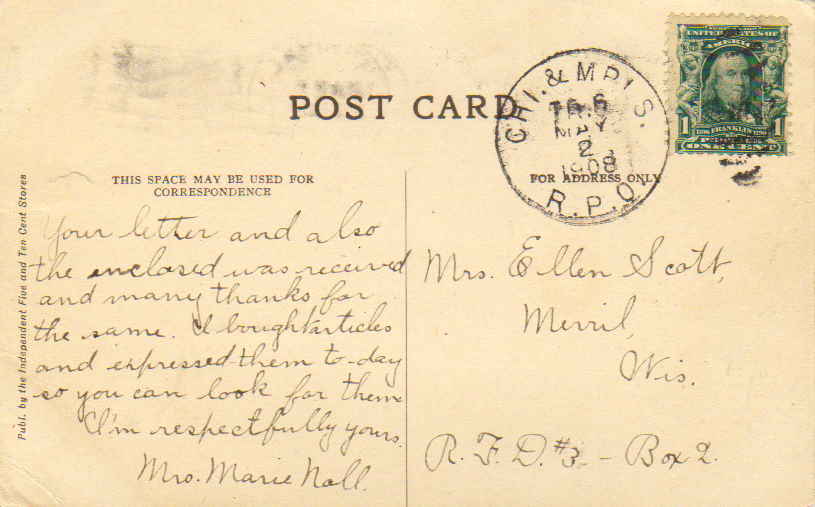 POST CARD
CHI. & MPLS.
TR. 6
MAY
2
1908
R.P.O.
UNITED STATES OF
AMERICA
1 FRANKLIN 1
ONE CENT
THIS SPACE MAY BE USED FOR
CORRESPONDENCE
FOR ADDRESS ONLY
Publ. by the Independent Five and Ten Cent Stores
Your letter and also
the enclosed was received
and many thanks for
the same. I bought articles
and expressed them to-day
so you can look for them
I'm respectfully yours.
Mrs. Marie Noll.
Mrs. Ellen Scott,
Merril,
Wis.
R. F. D. #3 - Box 2.